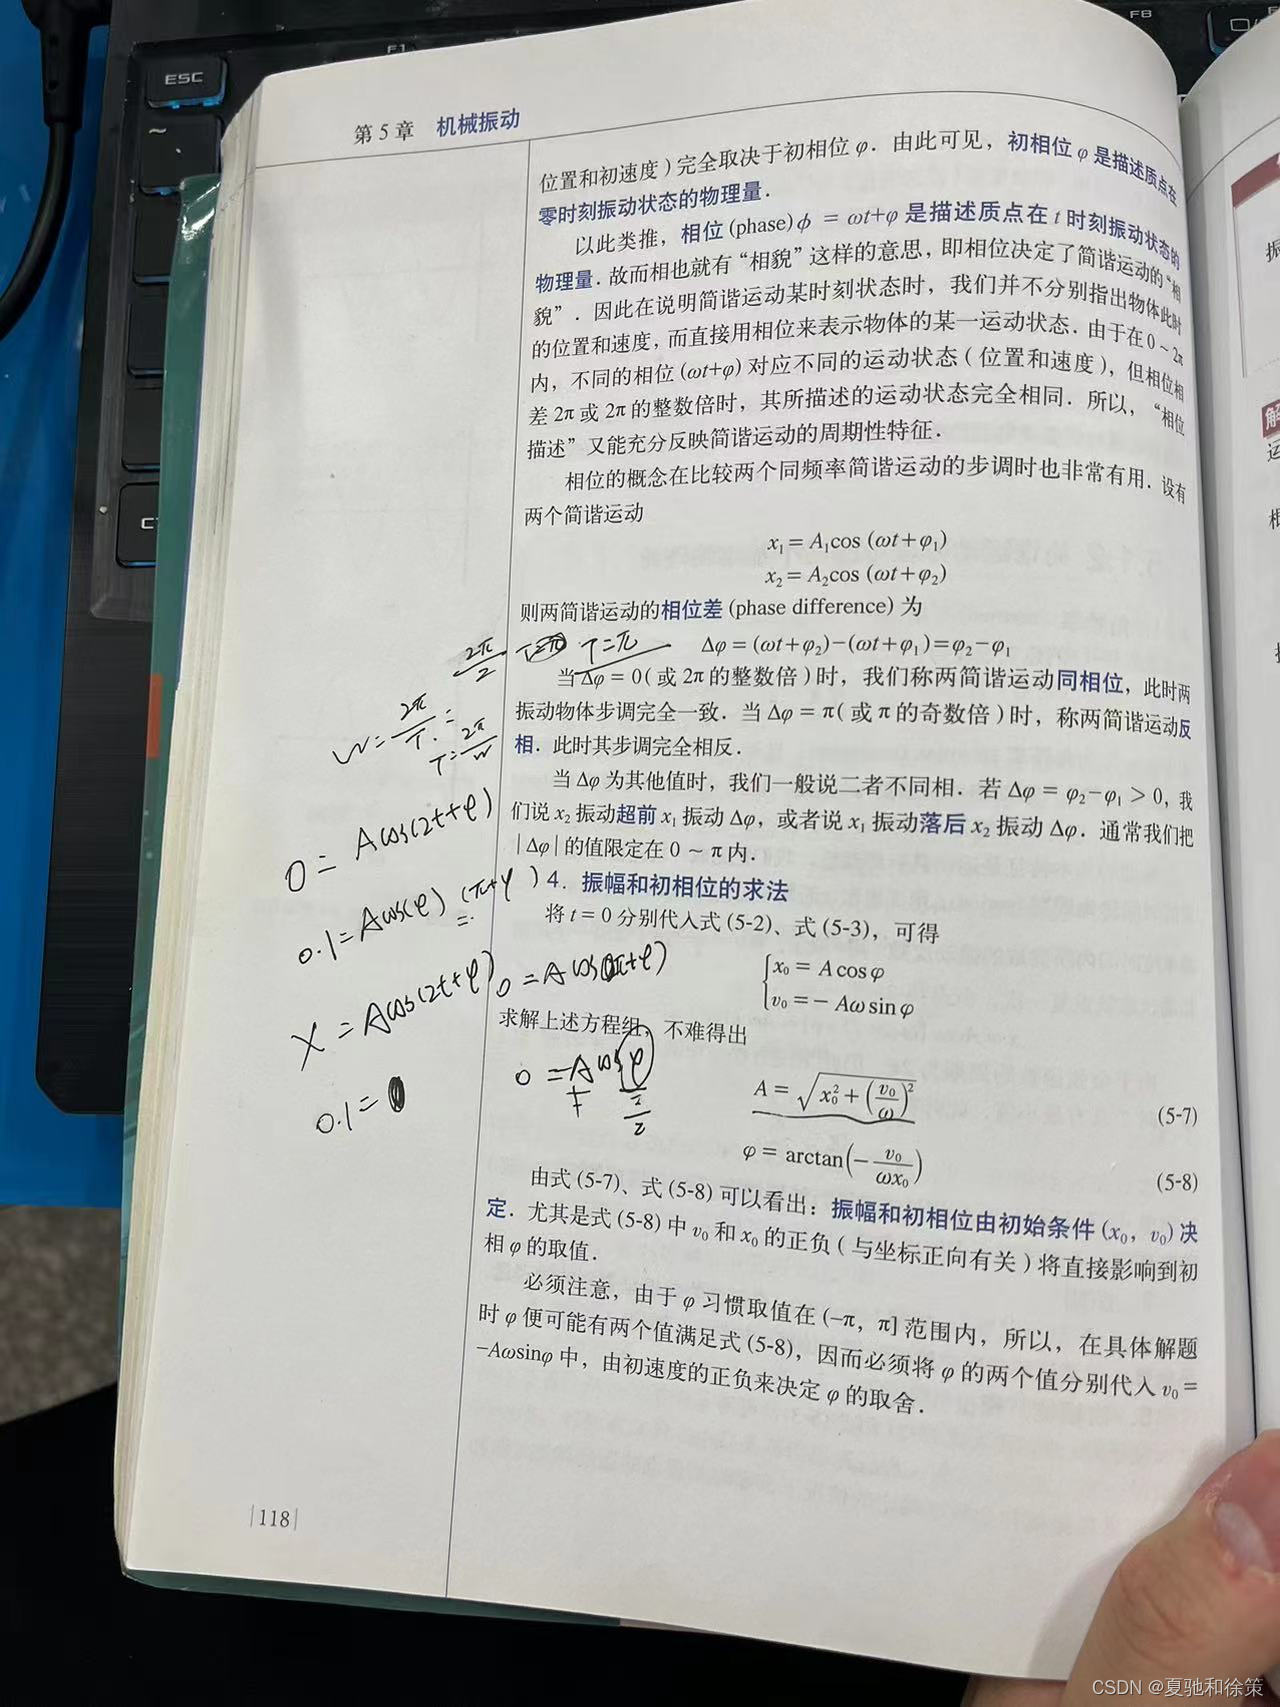 F1
F8
ESC
~
第 5 章 机械振动
位置和初速度）完全取决于初相位 φ．由此可见，初相位 φ 是描述质点在
零时刻振动状态的物理量．
以此类推，相位 (phase) ϕ = ωt+φ 是描述质点在 t 时刻振动状态的
物理量．故而相也就有“相貌”这样的意思，即相位决定了简谐运动的“相
貌”．因此在说明简谐运动某时刻状态时，我们并不分别指出物体此时
的位置和速度，而直接用相位来表示物体的某一运动状态．由于在 0 ~ 2π
内，不同的相位 (ωt+φ) 对应不同的运动状态（位置和速度），但相位相
差 2π 或 2π 的整数倍时，其所描述的运动状态完全相同．所以，“相位
描述”又能充分反映简谐运动的周期性特征．
相位的概念在比较两个同频率简谐运动的步调时也非常有用．设有
两个简谐运动
x₁ = A₁cos (ωt+φ₁)
x₂ = A₂cos (ωt+φ₂)
则两简谐运动的相位差 (phase difference) 为
Δφ = (ωt+φ₂)−(ωt+φ₁)=φ₂−φ₁
当 Δφ = 0（或 2π 的整数倍）时，我们称两简谐运动同相位，此时两
振动物体步调完全一致．当 Δφ = π（或 π 的奇数倍）时，称两简谐运动反
相．此时其步调完全相反．
当 Δφ 为其他值时，我们一般说二者不同相．若 Δφ = φ₂−φ₁ > 0，我
们说 x₂ 振动超前 x₁ 振动 Δφ，或者说 x₁ 振动落后 x₂ 振动 Δφ．通常我们把
|Δφ| 的值限定在 0 ~ π 内．
4．振幅和初相位的求法
将 t = 0 分别代入式 (5-2)、式 (5-3)，可得
x₀ = A cosφ
v₀ = − Aω sinφ
求解上述方程组，不难得出
A = √(x₀² + (v₀/ω)²) (5-7)
φ = arctan(− v₀/ωx₀) (5-8)
由式 (5-7)、式 (5-8) 可以看出：振幅和初相位由初始条件 (x₀，v₀) 决
定．尤其是式 (5-8) 中 v₀ 和 x₀ 的正负（与坐标正向有关）将直接影响到初
相 φ 的取值．
必须注意，由于 φ 习惯取值在 (−π，π] 范围内，所以，在具体解题
时 φ 便可能有两个值满足式 (5-8)，因而必须将 φ 的两个值分别代入 v₀ =
−Aωsinφ 中，由初速度的正负来决定 φ 的取舍．
2π/2 T=π
W = 2π/T
T = 2π/w
0 = Acos(2t+φ)
0.1 = Acos(φ) (π+φ)
X = Acos(2t+φ)
0 = Acos(π+φ)
0 = A cos φ
0.1 =
|118|
CSDN @夏驰和徐策